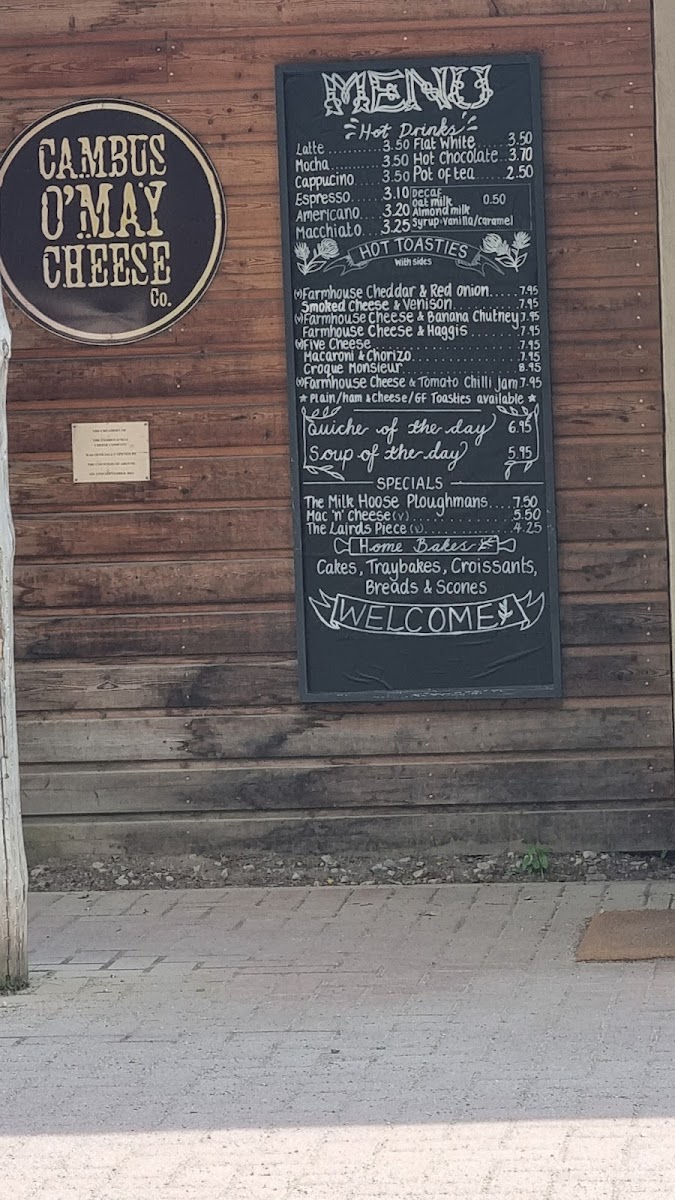 CAMBUS
O'MAY
CHEESE
Co.
MENU
Hot Drinks
Latte.......... 3.50
Mocha.......... 3.50
Cappucino..... 3.50
Espresso...... 3.10
Americano.... 3.20
Macchiato.... 3.25
Flat White..... 3.50
Hot Chocolate.. 3.70
Pot of tea..... 2.50
Decaf
Oat milk 0.50
Almond milk
Syrup-Vanilla/caramel
HOT TOASTIES
With sides
(v) Farmhouse Cheddar & Red onion..... 7.95
Smoked Cheese & Venison............ 7.95
(v) Farmhouse Cheese & Banana Chutney 7.95
Farmhouse Cheese & Haggis.......... 7.95
(v) Five Cheese........................ 7.95
Macaroni & Chorizo................. 7.95
Croque Monsieur.................... 8.95
(v) Farmhouse Cheese & Tomato Chilli jam 7.95
* Plain/ham & cheese/GF Toasties available *
Quiche of the day 6.95
Soup of the day 5.95
SPECIALS
The Milk Hoose Ploughmans.... 7.50
Mac 'n' Cheese (v)............. 5.50
The Lairds Piece (v)........... 4.25
Home Bakes
Cakes, Traybakes, Croissants,
Breads & Scones
WELCOME